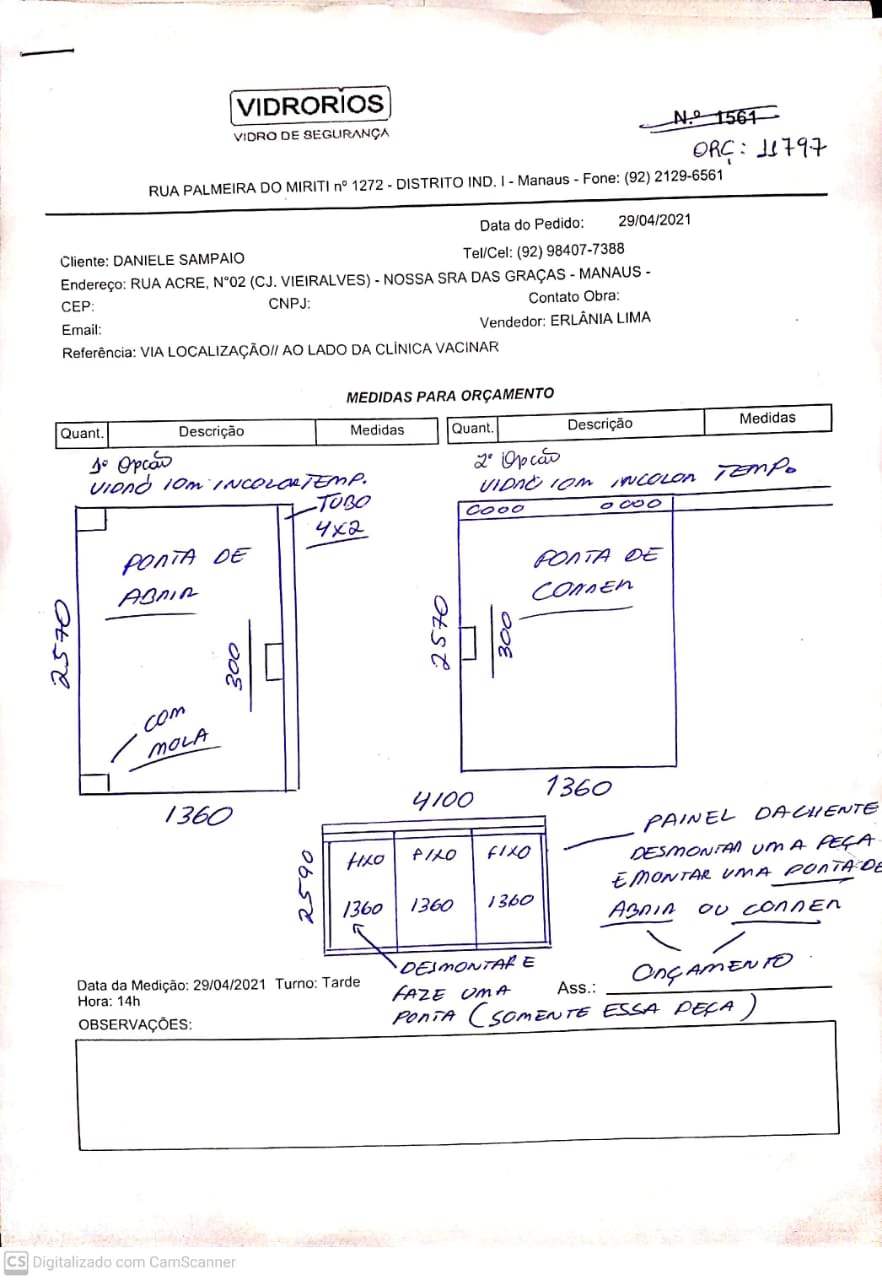 VIDRORIOS
VIDRO DE SEGURANÇA
N.º 1561
ORÇ: 11797
RUA PALMEIRA DO MIRITI nº 1272 - DISTRITO IND. I - Manaus - Fone: (92) 2129-6561
Data do Pedido: 29/04/2021
Cliente: DANIELE SAMPAIO Tel/Cel: (92) 98407-7388
Endereço: RUA ACRE, N°02 (CJ. VIEIRALVES) - NOSSA SRA DAS GRAÇAS - MANAUS -
CEP: CNPJ: Contato Obra:
Email: Vendedor: ERLÂNIA LIMA
Referência: VIA LOCALIZAÇÃO// AO LADO DA CLÍNICA VACINAR
MEDIDAS PARA ORÇAMENTO
Quant. Descrição Medidas Quant. Descrição Medidas
1º Opcão
VIDRO 10M INCOLOR TEMP.
TUBO
4X2
PORTA DE
ABRIR
2570
300
COM
MOLA
1360
2º Opcão
VIDRO 10M INCOLOR TEMP.
PORTA DE
CORRER
2570
300
1360
4100
2590
FIXO FIXO FIXO
1360 1360 1360
PAINEL DA CLIENTE
DESMONTAR UMA PEÇA
E MONTAR UMA PORTA DE
ABRIR OU CORRER
ORÇAMENTO
DESMONTAR E
FAZE UMA
PORTA (SOMENTE ESSA PEÇA)
Data da Medição: 29/04/2021 Turno: Tarde
Hora: 14h
Ass.:
OBSERVAÇÕES:
CS Digitalizado com CamScanner